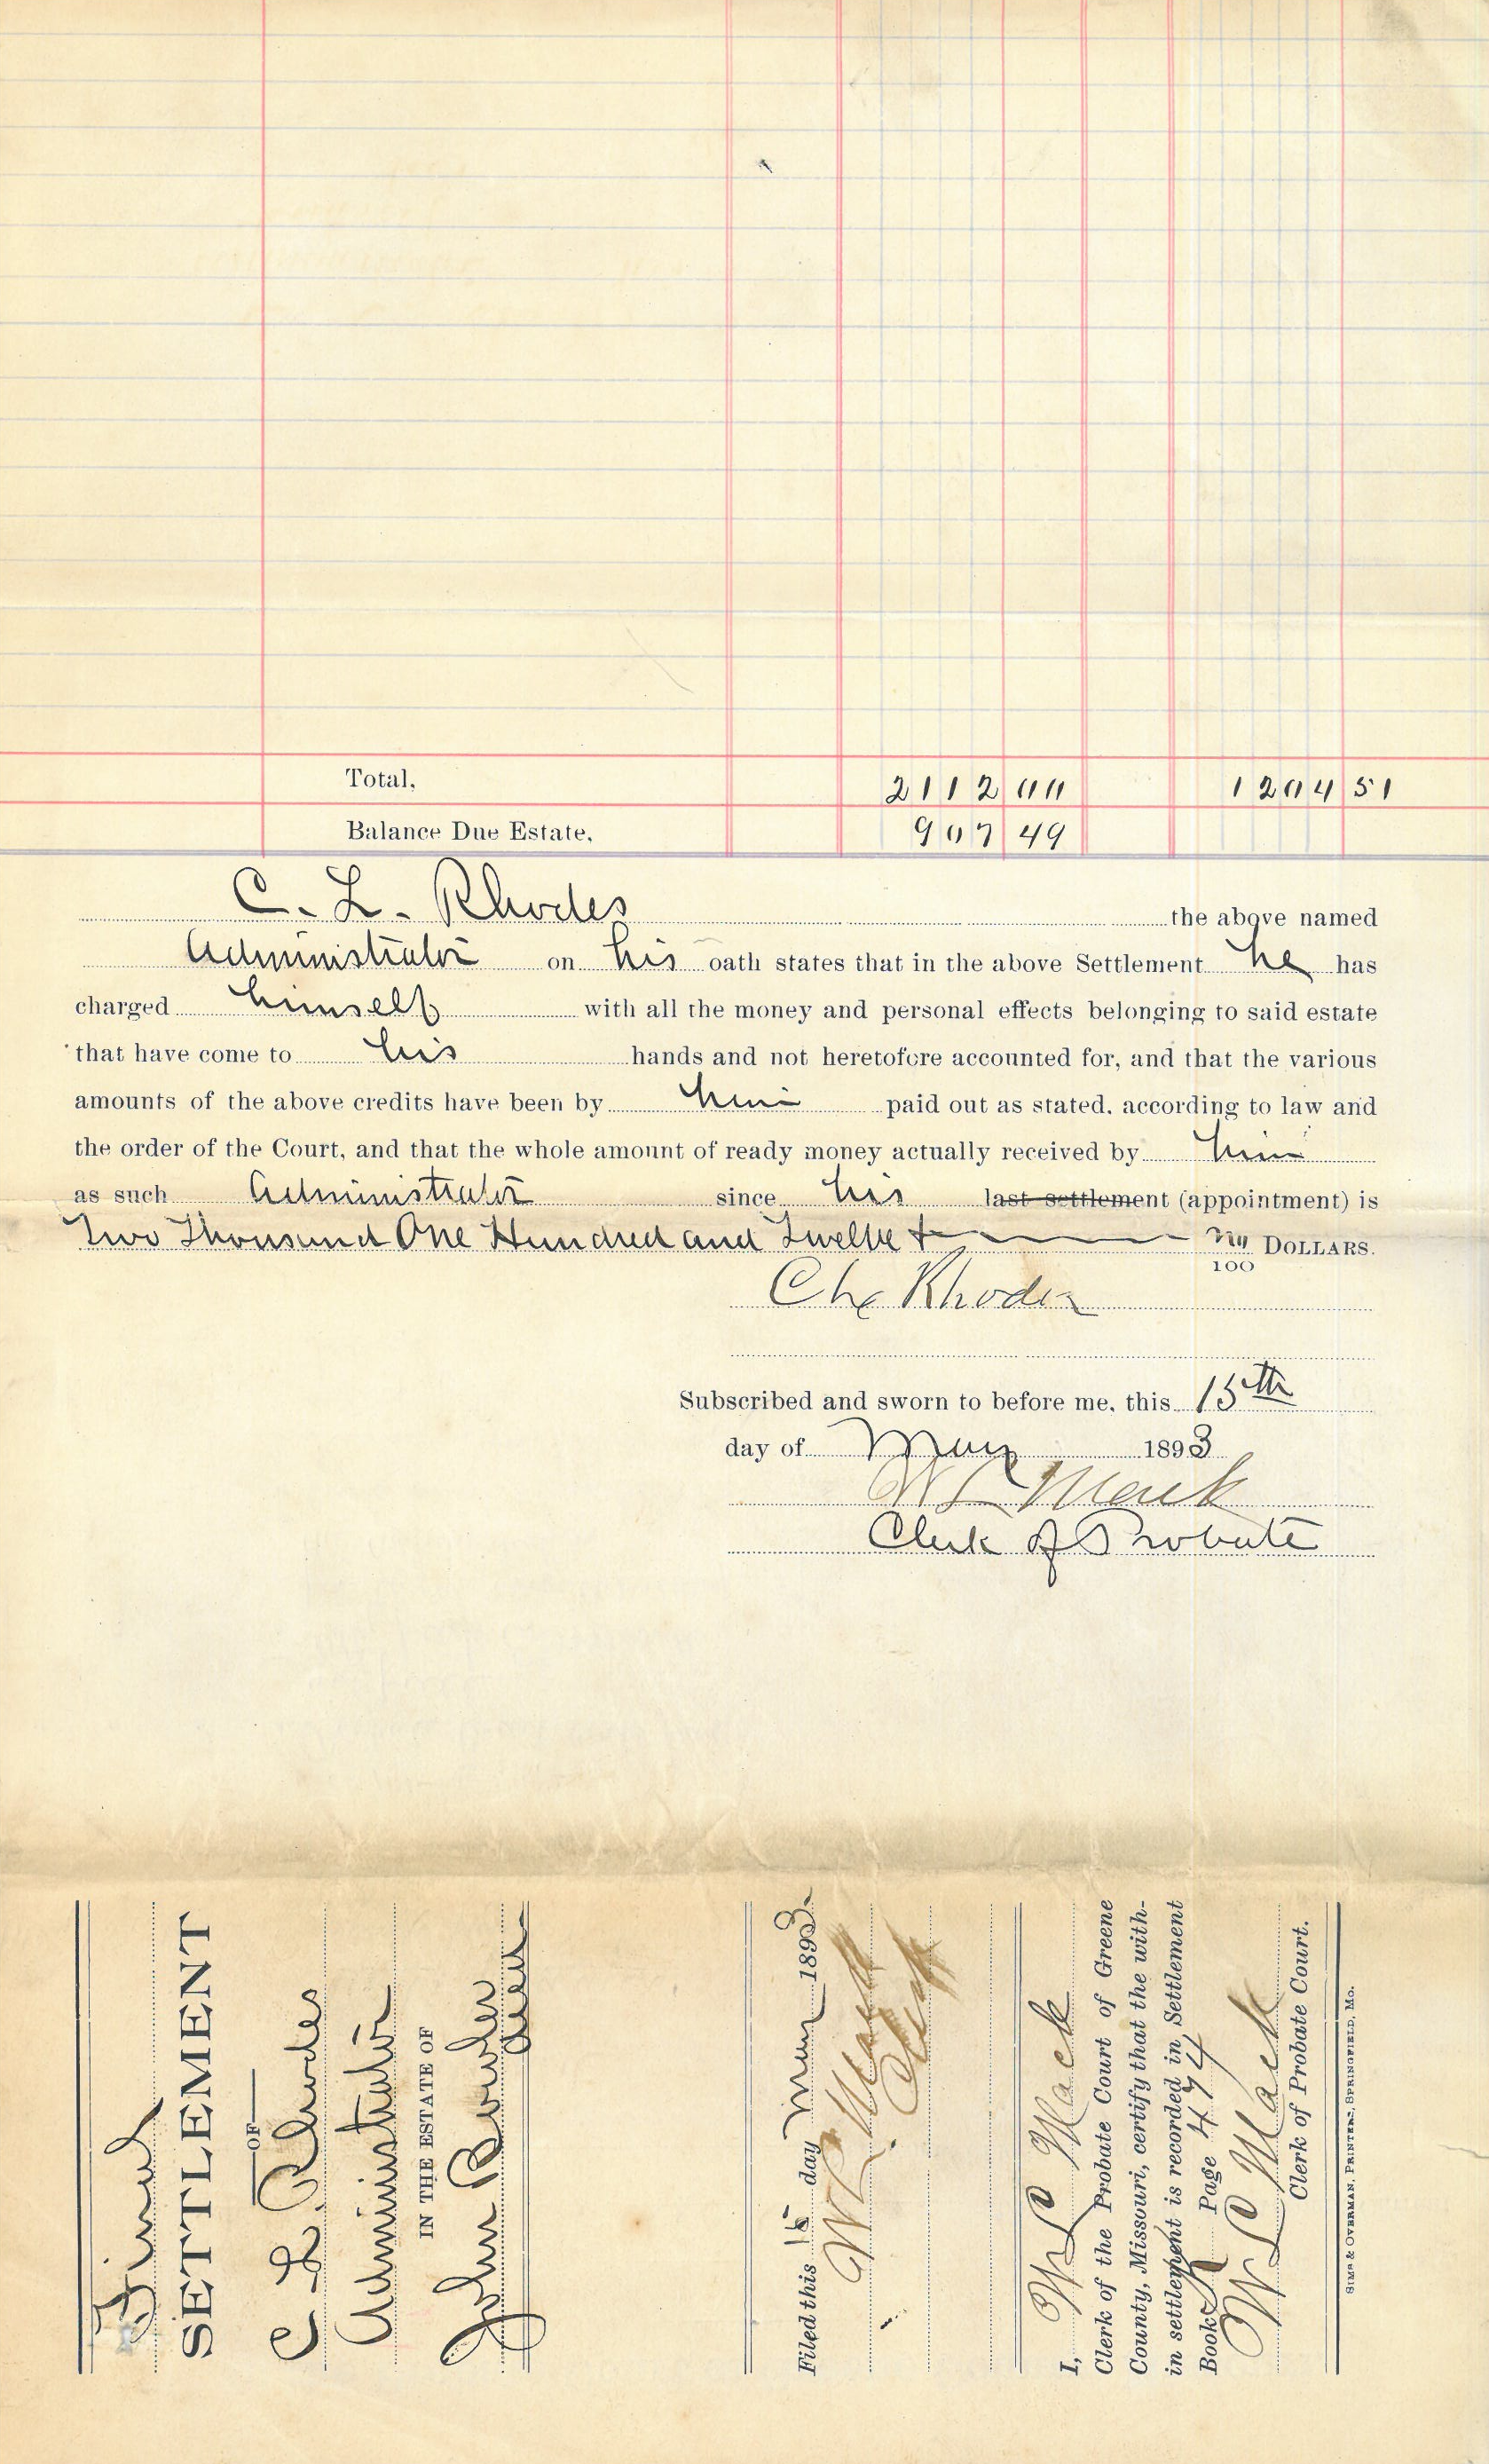 Total, 2112 00 1204 51
Balance Due Estate, 907 49
C. L. Rhodes the above named
Administrator on his oath states that in the above Settlement he has
charged himself with all the money and personal effects belonging to said estate
that have come to his hands and not heretofore accounted for, and that the various
amounts of the above credits have been by him paid out as stated, according to law and
the order of the Court, and that the whole amount of ready money actually received by him
as such Administrator since his last settlement (appointment) is
Two Thousand One Hundred and Twelve + no/100 DOLLARS.
Rhodes
Subscribed and sworn to before me, this 15th
day of May 1893
W L Mack
Clerk of Probate
Final
SETTLEMENT
OF
C. L. Rhodes
Administrator
IN THE ESTATE OF
John Bowler
Filed this 15 day May 1893.
W L Mack
Clerk
I, W L C Mack
Clerk of the Probate Court of Greene
County, Missouri, certify that the with-
in settlement is recorded in Settlement
Book Page 474
W L C Mack
Clerk of Probate Court.
SIMS & OVERMAN, PRINTERS, SPRINGFIELD, MO.